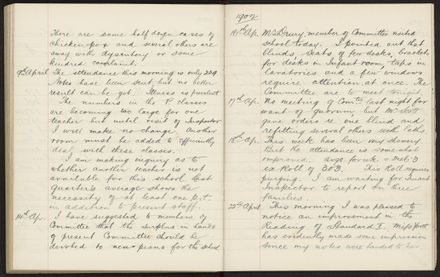 There are some half dozen cases of
chicken pox and several others are
away with dysentery or some
kindred complaint.
9th April The attendance this morning is only 229
Notes have been sent but no better
result can be got. Illness is prevalent
The numbers in the P classes
are becoming too large for one
teacher but until visit of Inspector
I will make no change. Another
room must be added to efficiently
deal with these classes.
I am making inquiry as to
whether another teacher is not
available for this school. Last
Quarter's average shows the
necessity of at least one P.T.
in addition to present staff.
14th Ap. I have suggested to members of
Committee that the surplus in hands
of present Committee should be
devoted to new piano for the school
1902
16th Ap. Mr Drury, member of Committee visited
school today. I pointed out that
blinds, seats of few desks, brackets
for desks in Infant room, taps in
lavatories and a few windows
require attention at once. The
Committee are to meet tonight.
17th Ap. No meeting of Comtee last night for
want of quorum but Mr
gave order re one blind and
refitting several others with laths.
18th Ap. This week has been very showery
But the attendance is somewhat
improved. avge for wk = 261.3
ex Roll of 303. This Roll requires
purging. I am waiting for Truant
Inspector to report on three
families.
25th April This morning I was pleased to
notice an improvement in the
Reading of Standard I. Miss
has evidently made some impression
since my notes were handed to her.